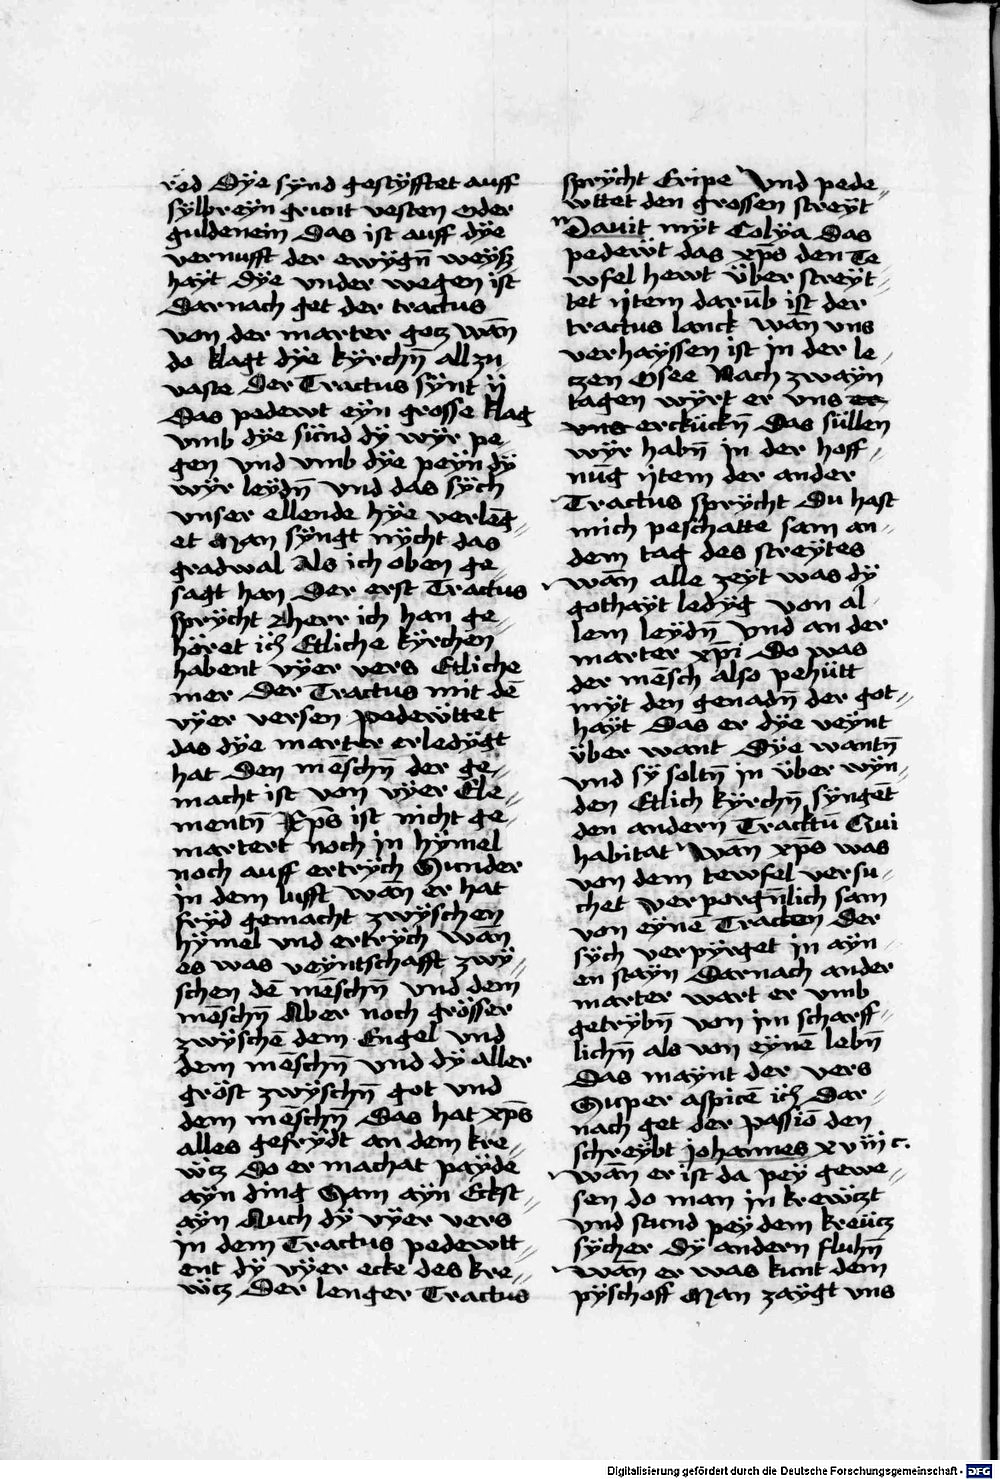 red Dÿe sÿnd gestÿfftet auff
sÿlbreÿn grunt vesten oder
guldenein Das ist auff dÿe
vernufft der ewÿgn̄ weÿsz
haÿt dÿe vnder wegen ist
Darnach get der tractus
von der marter gotz wān
do klagt dÿe kÿrchn̄ all zu
vaste Der Tractus sÿnt ij
Das pedewt eÿn grosse klag
vmb dÿe sünd dÿ wÿr pe
gen vnd vmb dÿe peÿn dÿ
wÿr leÿdn̄ vnd das sÿch
vnser ellende hÿe verlenḡ//
et Man sÿngt nÿcht das
gradwal Als ich oben ge//
sagt han Der erst Tractus
sprÿcht Aherr ich han ge//
höret ⁊c̄ Etliche kÿrchen
habent vÿer vers Etliche
mer Der Tractus mit dē
vÿer versen pedewttet
das dÿe marter erledÿgt
hat Den mēschn̄ der ge//
macht ist von vÿer Ele//
mentn̄ Xp̄s ist nicht ge//
martert noch in hÿmel
noch auff ertrÿch Sunder
in dem lufft wān er hat
frÿd gemacht zwÿschen
hÿmel vnd ertrÿch wān
es was veÿntschafft zwÿ//
schen dē mēschn̄ vnd dem
mēschn̄ Aber noch grösser
zwÿschē dem Engel vnd
dem mēschn̄ vnd dÿ aller
gröst zwÿschn̄ got vnd
dem mēschn̄ Das hat xp̄s
alles gefrÿdt an dem kre//
wtz Do er machat paÿde
aÿn ding Sam aÿn Eckst//
aÿn Auch dÿ vÿer vers
in dem Tractus pedewtt//
ent dÿ vÿer ecke des kre//
wtz Der lenger Tractus
sprÿcht Eripe Vnd pede//
wttet den grossen streÿt
Dauit mÿt Golÿa Das
pedewt das xp̄s den Te
wfel hewt über streÿt//
tet ijtem darūb ist der
tractus lanck wān vns
verhaÿssen ist in der le//
czen Osee Nach zwaÿn
tagen wÿrt er vns er
vns erckückn̄ Das süllen
wÿr habn̄ in der hoff//
nūg ijtem der ander
Tractus sprÿcht Du hast
mich peschatte sam an//
dem tag des streÿtes
wān alle zeÿt was dÿ
gothaÿt ledÿg von al
lem leÿdn̄ Vnd an der
marter xp̄i Do was
der mēsch also pehütt
mÿt den genadn̄ der got//
haÿt Das er dÿe veÿnt
über want Dÿe wantn̄
vnd sÿ soltn̄ in über wÿn//
den Etlich kÿrchn̄ sÿnget
den andern Tracktū Qui
habitat Wān xp̄s was
von dem tewfel versu//
chet verporgn̄lich sam
von eÿnē Tracten Der
sÿch verpÿrget in aÿn//
en staÿn Darnach ander
marter wart er vmb
getrÿbn̄ von im scharff//
lichn̄ als von eÿnē lebn̄
Das maÿnt der vers
Super aspicē ⁊c̄ Dar//
nach get der passiō den
schreÿbt johannes xviij c.
wān er ist da peÿ gewe//
sen do man in krewtzt
vnd stund peÿ dem kreütz
sÿcher Dÿ andern fluhn̄
wān er was kunt dem
pÿschoff Man zaÿgt vns
Digitalisierung gefördert durch die Deutsche Forschungsgemeinschaft - DFG